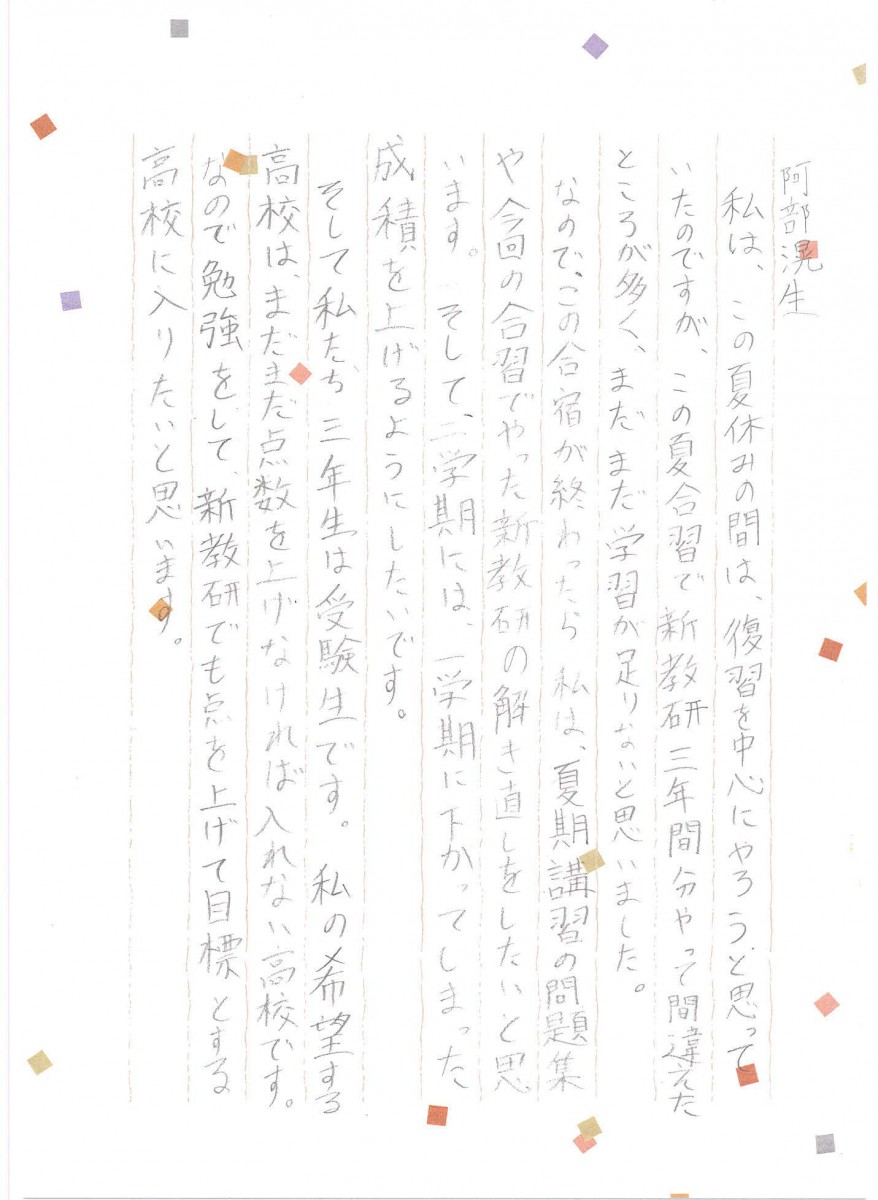 阿部滉生
私は、この夏休みの間は、復習を中心にやろうと思って
いたのですが、この夏合習で新教研三年間分やって間違えた
ところが多く、まだまだ学習が足りないと思いました。
なので、この合宿が終わったら私は、夏期講習の問題集
や今回の合習でやった新教研の解き直しをしたいと思
います。そして、二学期には、一学期に下がってしまった
成積を上げるようにしたいです。
そして私たち三年生は受験生です。私の希望する
高校は、まだまだ点数を上げなければ入れない高校です。
なので勉強をして、新教研でも点を上げて目標とする
高校に入りたいと思います。